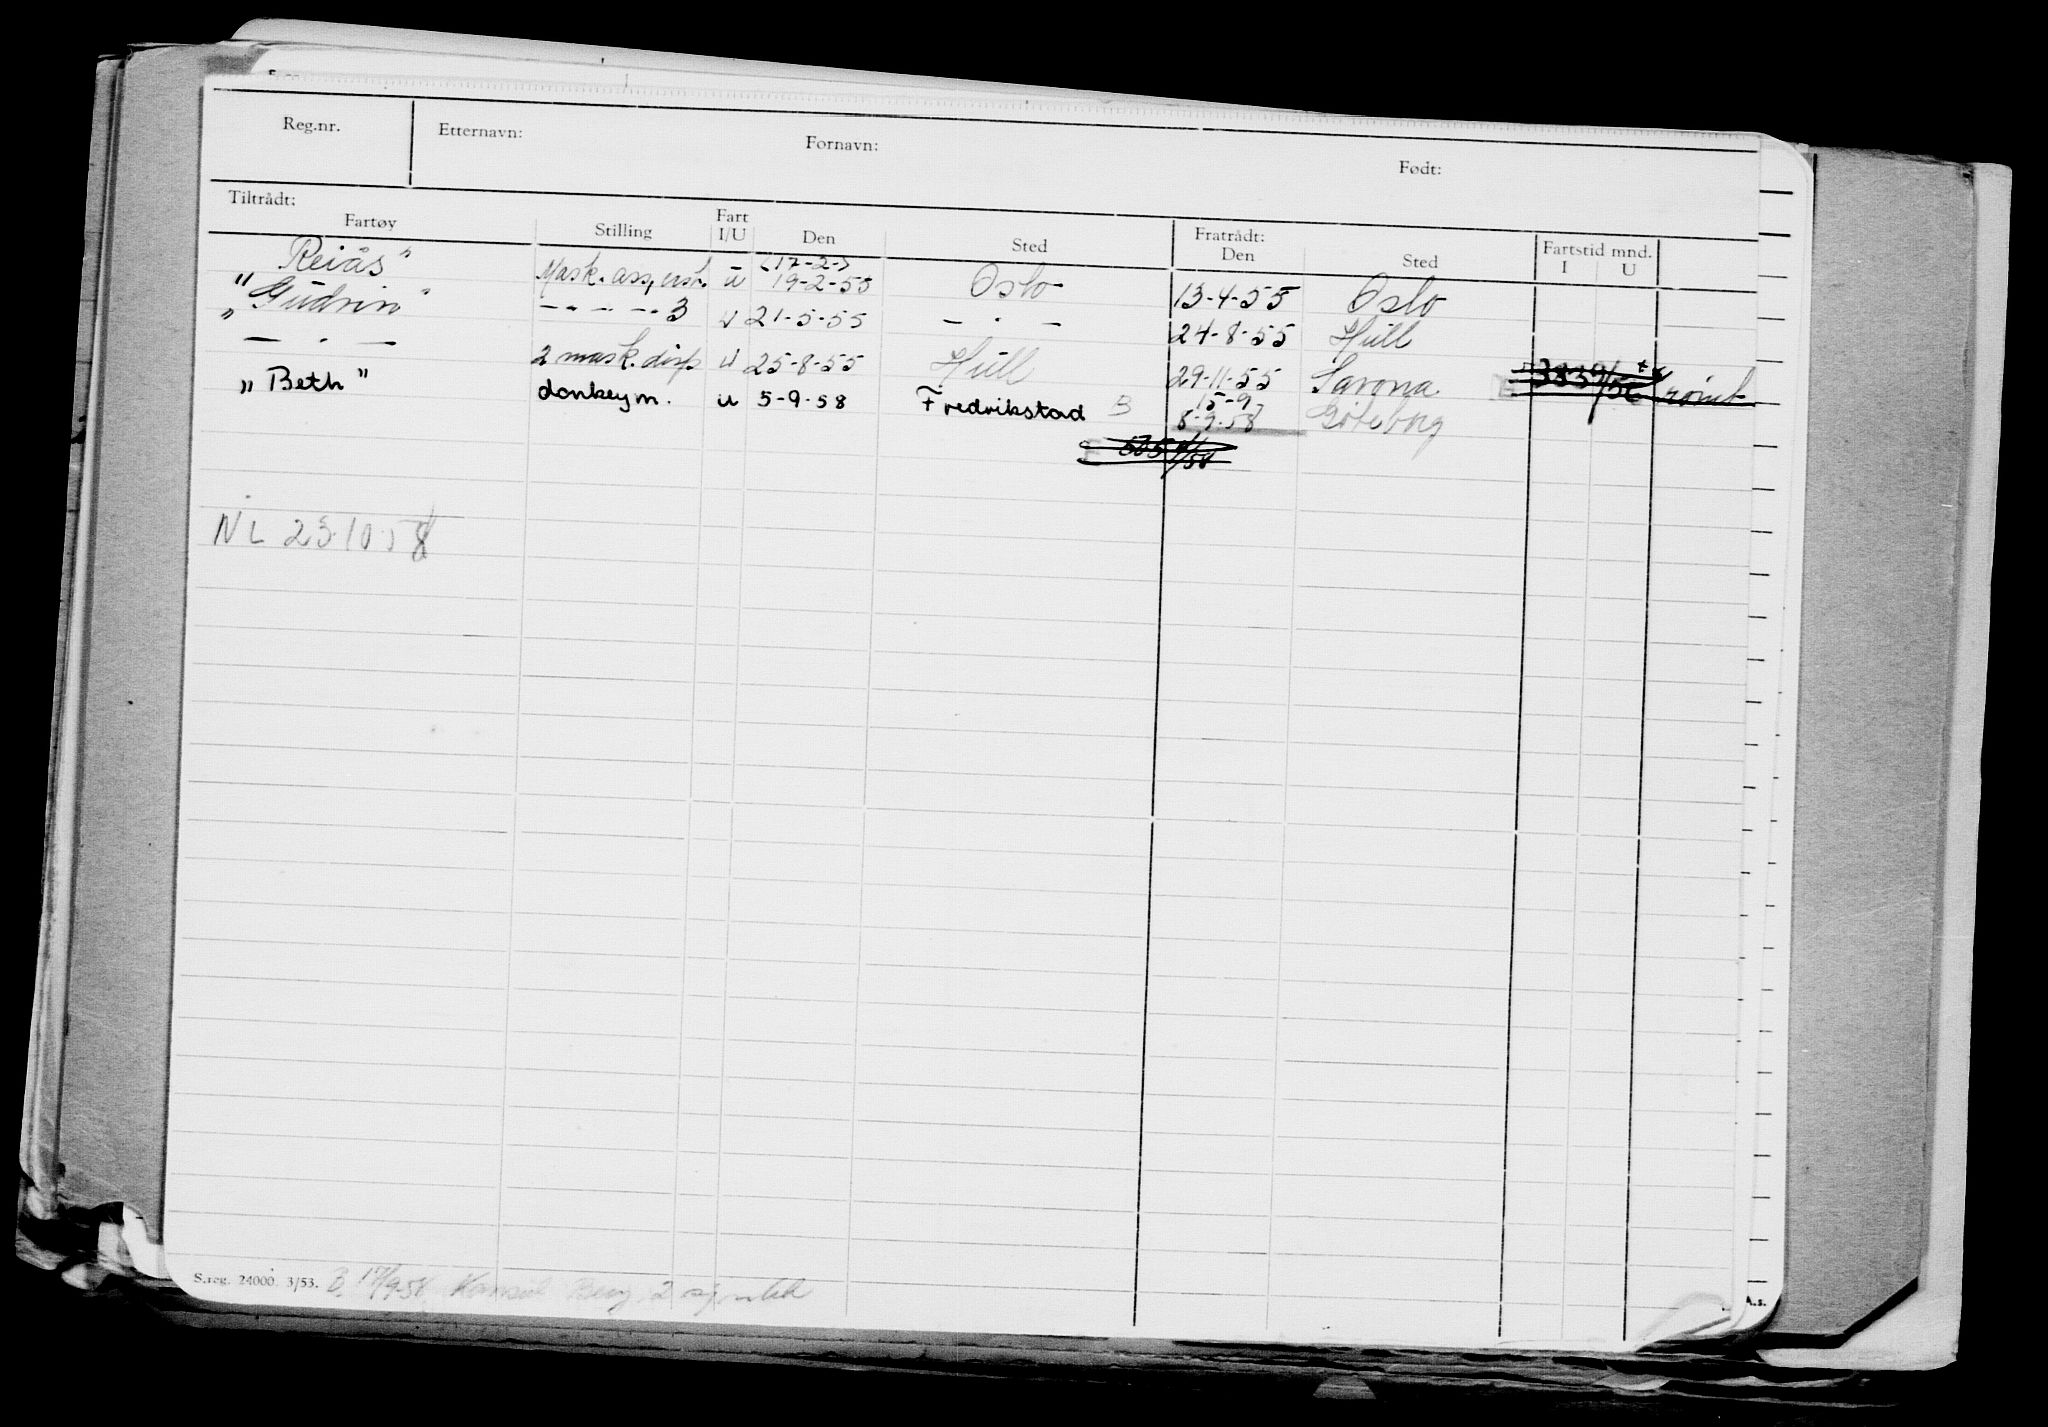 Reg.nr. Etternavn: Fornavn: Født:
Tiltrådt: Fratrådt: Fartstid mnd.
Fartøy Stilling Fart I/U Den Sted Den Sted I U
(17-2-)
"Reiås" Mask. ass, u 19-2-55 Oslo 13-4-55 Oslo
"Gudrun" — " — " — 3 u 21-5-55 — " — 24-8-55 Hull
— " — 2 mask. disp u 25-8-55 Hull 29-11-55 Savona 3839/56 rømt
15-9-
"Beth" donkeym. u 5-9-58 Fredrikstad B 8-9-58 Göteborg
505/58
NL 23.10.58
S.reg. 24000. 3/53. B. 17/9-58 Konsul Berg 2
A.s.